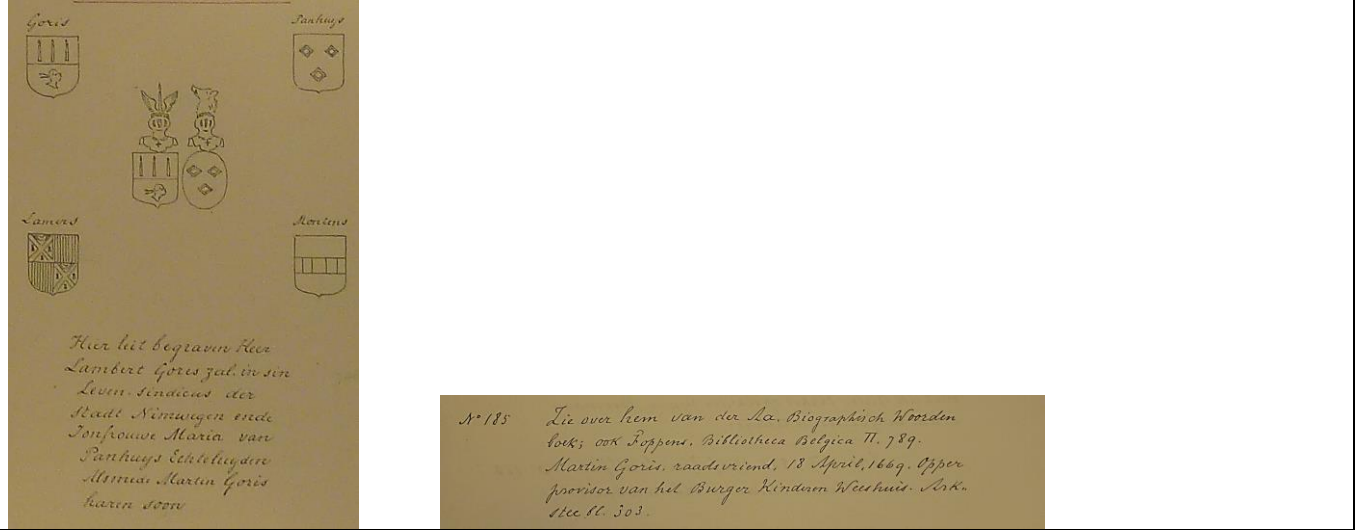 Goris
Panhuys
Lamers
Montens
Hier leit begraven Heer
Lambert Goris zal. in sin
Leven. sindicus der
stadt Nimwegen ende
Jonfrouwe Maria van
Panhuys Echteluyden
Alsmede Martin Goris
haren soon
No 185 Zie over hem van der Aa, Biographisch Woorden
boek; ook Foppens, Bibliotheca Belgica II. 789.
Martin Goris, raadsvriend, 18 April, 1669. Opper
provisor van het Burger Kinderen Weeshuis. Ark-
stee bl. 303.